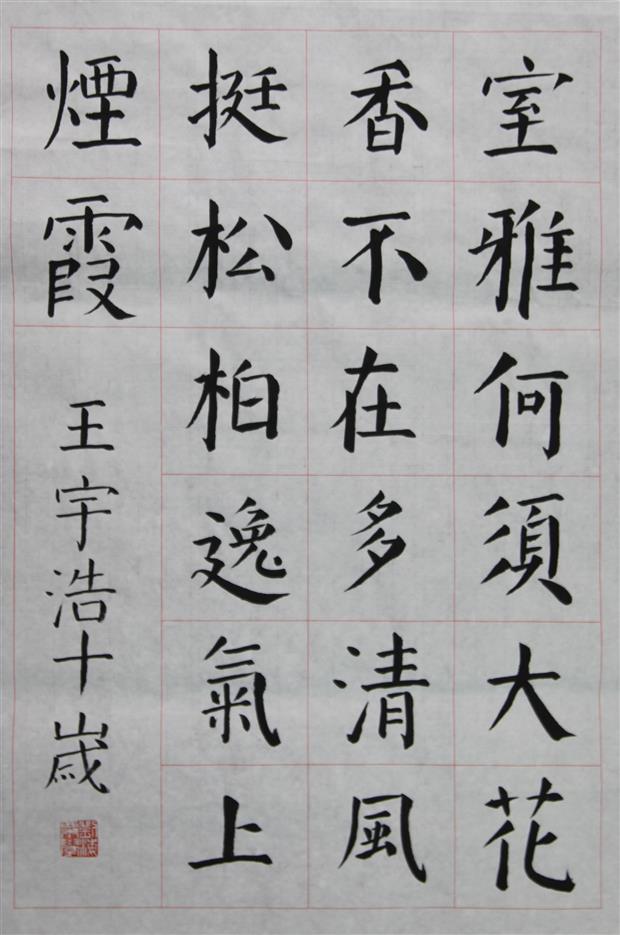 室雅何須大花
香不在多清風
挺松柏逸氣上
煙霞
王宇浩十歲